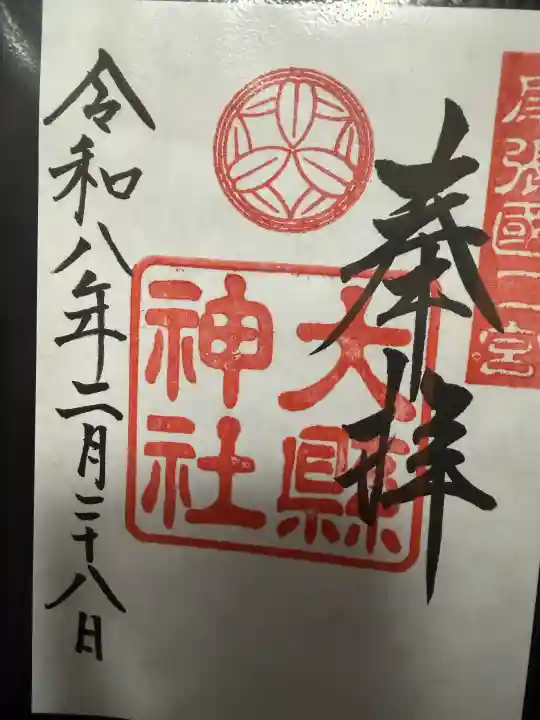 尾張國二宮
奉拝
大縣
神社
令和八年二月二十八日